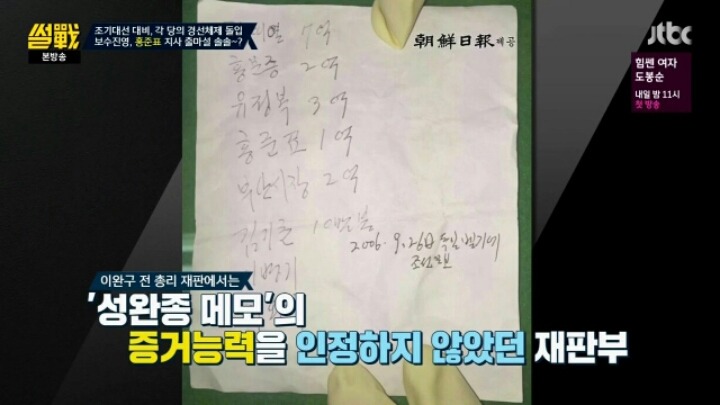 썰戰
본방송
조기대선 대비, 각 당의 경선체제 돌입
보수진영, 홍준표 지사 출마설 솔솔~?
jtbc
힘쎈 여자
도봉순
내일 밤 11시
첫 방송
朝鮮日報 제공
7억
홍문종 2억
유정복 3억
홍준표 1억
부산시장 2억
김기춘 10만불
2006. 9. 26日 독일 벨기에
조선일보
이완구 전 총리 재판에서는
'성완종 메모'의
증거능력을 인정하지 않았던 재판부